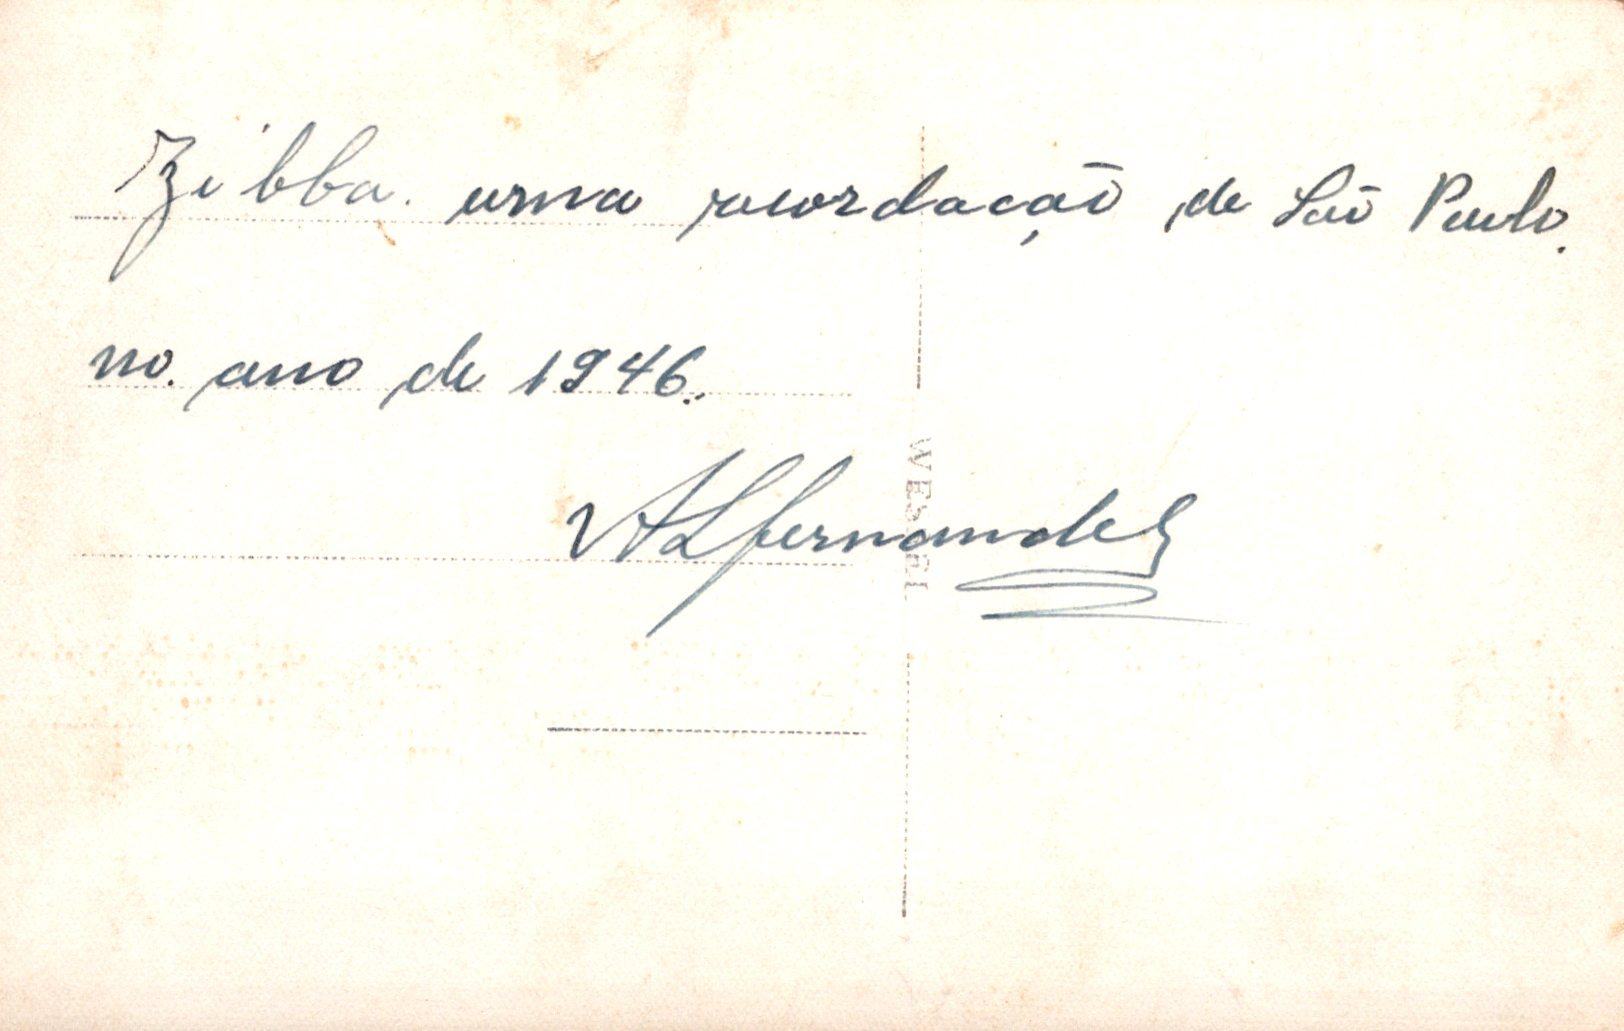 Zibba. uma recordação de São Paulo.
no. ano de 1946.
ALfernandes
WESSEL